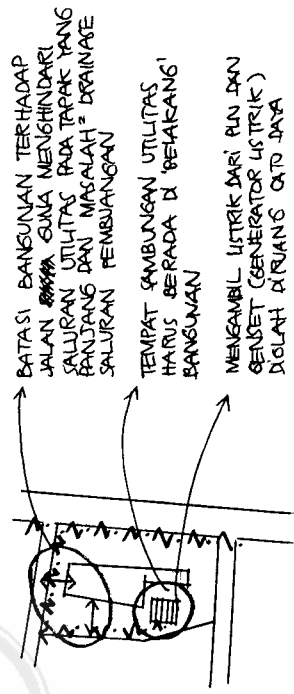 BATASI BANGUNAN TERHADAP
JALAN GUNA MENGHINDARI
SALURAN UTILITAS PADA TAPAK YANG
PANJANG DAN MASALAH² DRAINASE
SALURAN PEMBUANGAN
TEMPAT SAMBUNGAN UTILITAS
HARUS BERADA DI 'BELAKANG'
BANGUNAN
MENGAMBIL LISTRIK DARI PLN DAN
GENSET (GENERATOR LISTRIK)
DIOLAH DIRUANG DAYA